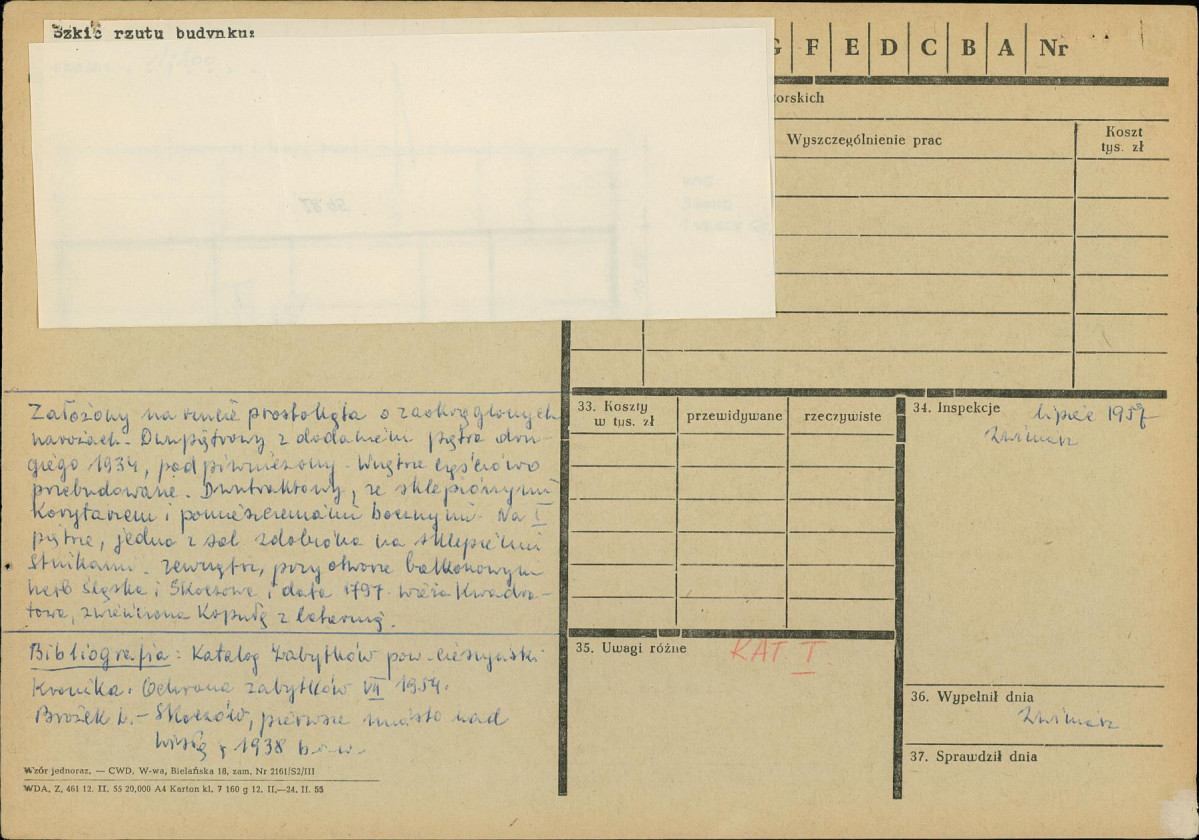 Szkic rzutu budynku:
G F E D C B A Nr
torskich
Wyszczególnienie prac
Koszt
tys. zł
Założony na rzucie prostokąta o zaokrąglonych
narożach. Dwupiętrowy z dodaniem piętra dru-
giego 1934, podpiwniczony. Wnętrze częściowo
przebudowane. Dwutraktowy, ze sklepionymi
korytarzem i pomieszczeniami bocznymi. Na I
piętrze, jedna z sal zdobiona na sklepieniu
stiukami. Zewnątrz, przy otworze balkonowym
herb Śląska i Skoczowa i data 1797. Wieża kwadra-
towa, zwieńczona kopułą z latarnią.
Bibliografia: Katalog Zabytków pow. cieszyński
Kronika. Ochrona zabytków VII 1954.
Brożek L. – Skoczów, pierwsze miasto nad
Wisłą, 1938
Wzór jednoraz. — CWD, W-wa, Bielańska 18, zam. Nr 2161/S2/III
WDA. Z. 461 12. II. 55 20,000 A4 Karton kl. 7 160 g 12. II.—24. II. 55
33. Koszty
w tys. zł
przewidywane
rzeczywiste
34. Inspekcje
lipiec 1957
35. Uwagi różne
KAT. I
36. Wypełnił dnia
37. Sprawdził dnia